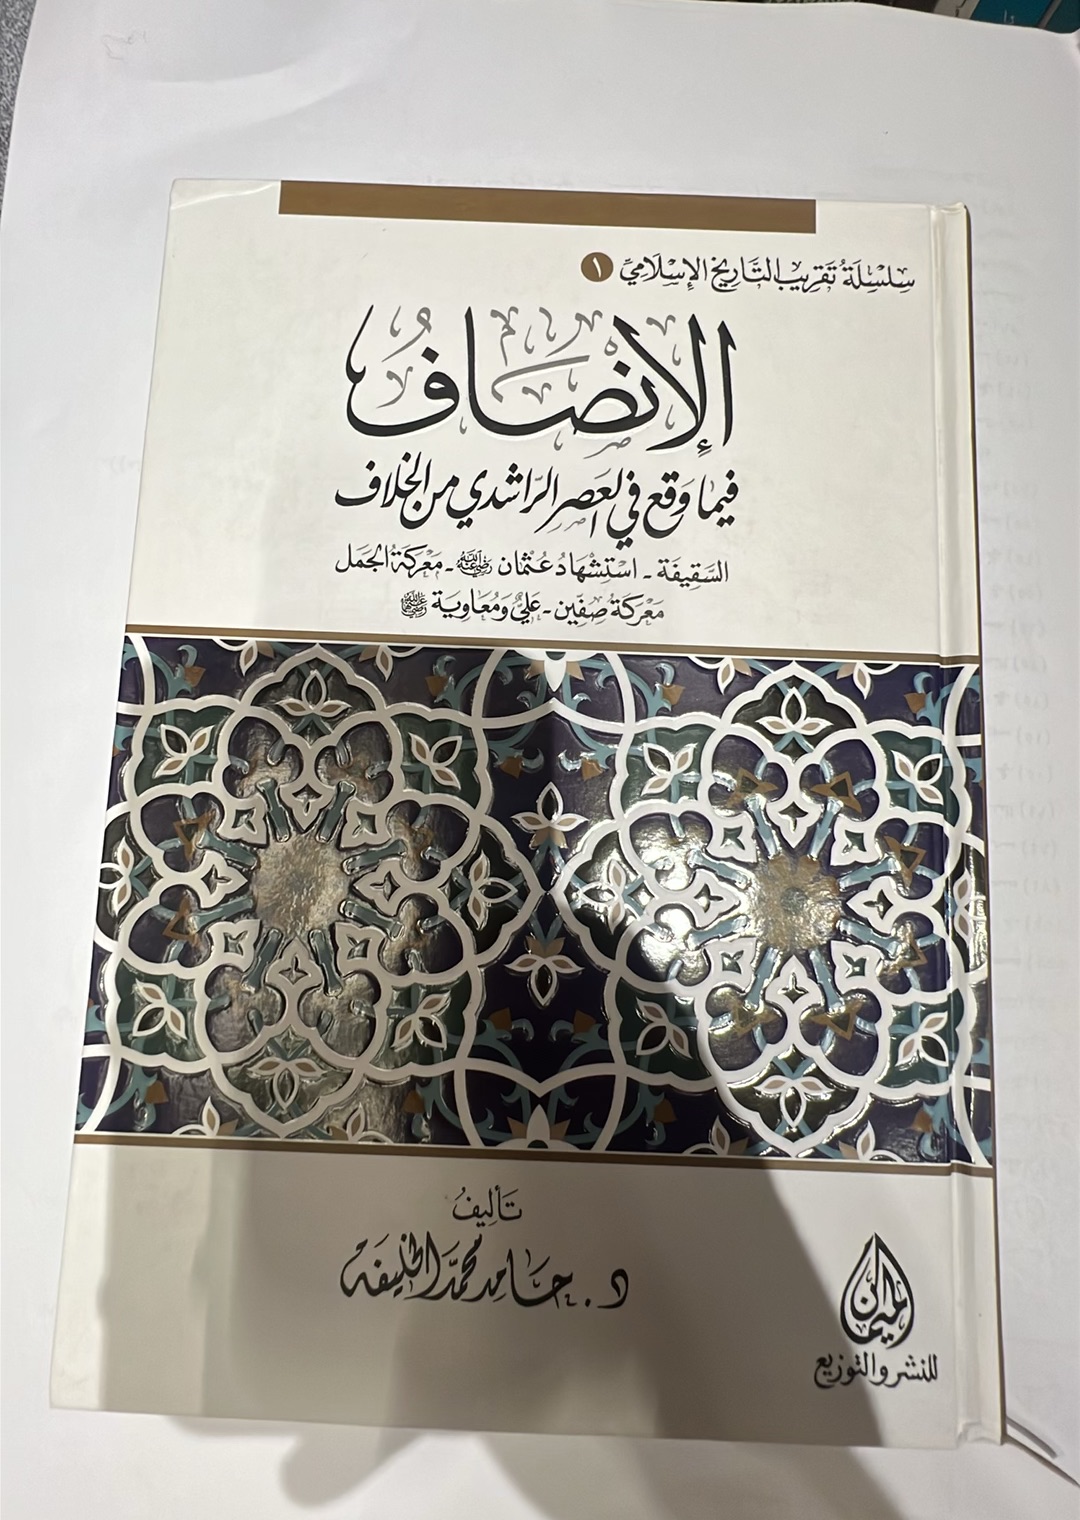 سِلْسِلَةُ تَقْرِيبِ التَّارِيخِ الإِسْلَامِيِّ ١
الإِنْصَافُ
فِيمَا وَقَعَ فِي العَصْرِ الرَّاشِدِي مِنَ الخِلَاف
السَّقِيفَة - اسْتِشْهَادُ عُثْمَان رضي الله عنه - مَعْرَكَةُ الجَمَل
مَعْرَكَةُ صِفِّين - عَلِيٌّ وَمُعَاوِيَة رضي الله عنهما
تَأْلِيفُ
د. حَامِد مُحَمَّد الخَلِيفَة
الميمان
للنشر والتوزيع